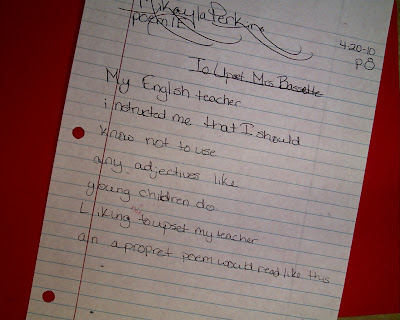 Mikayla Perkins
poem 1E
4-20-10
p8
To Upset Mrs Bassette
My English teacher
instructed me that I should
know not to use
any adjectives like
young children do
Liking to upset my teacher
an a propret poem would read like this